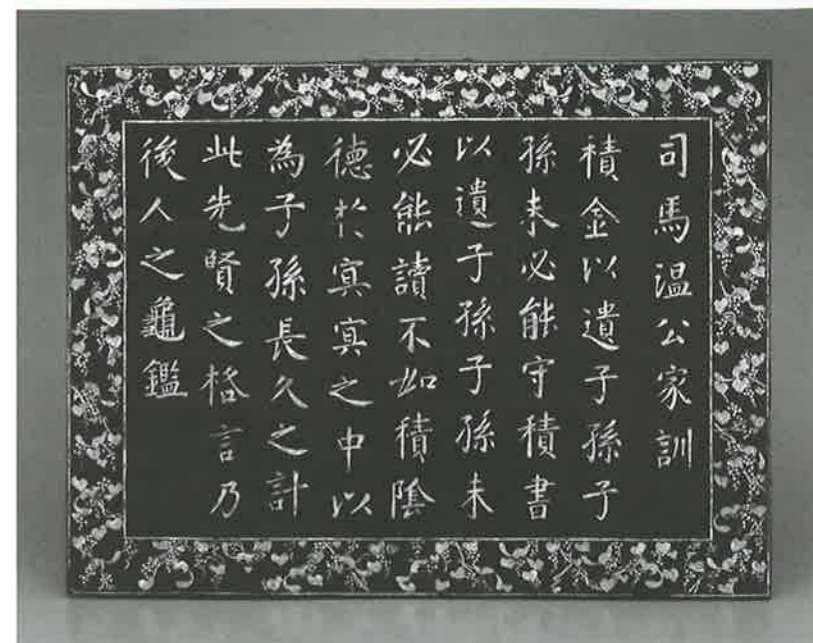 司馬温公家訓
積金以遺子孫子
孫未必能守積書
以遺子孫子孫未
必能讀不如積陰
德於冥冥之中以
為子孫長久之計
此先賢之格言乃
後人之龜鑑